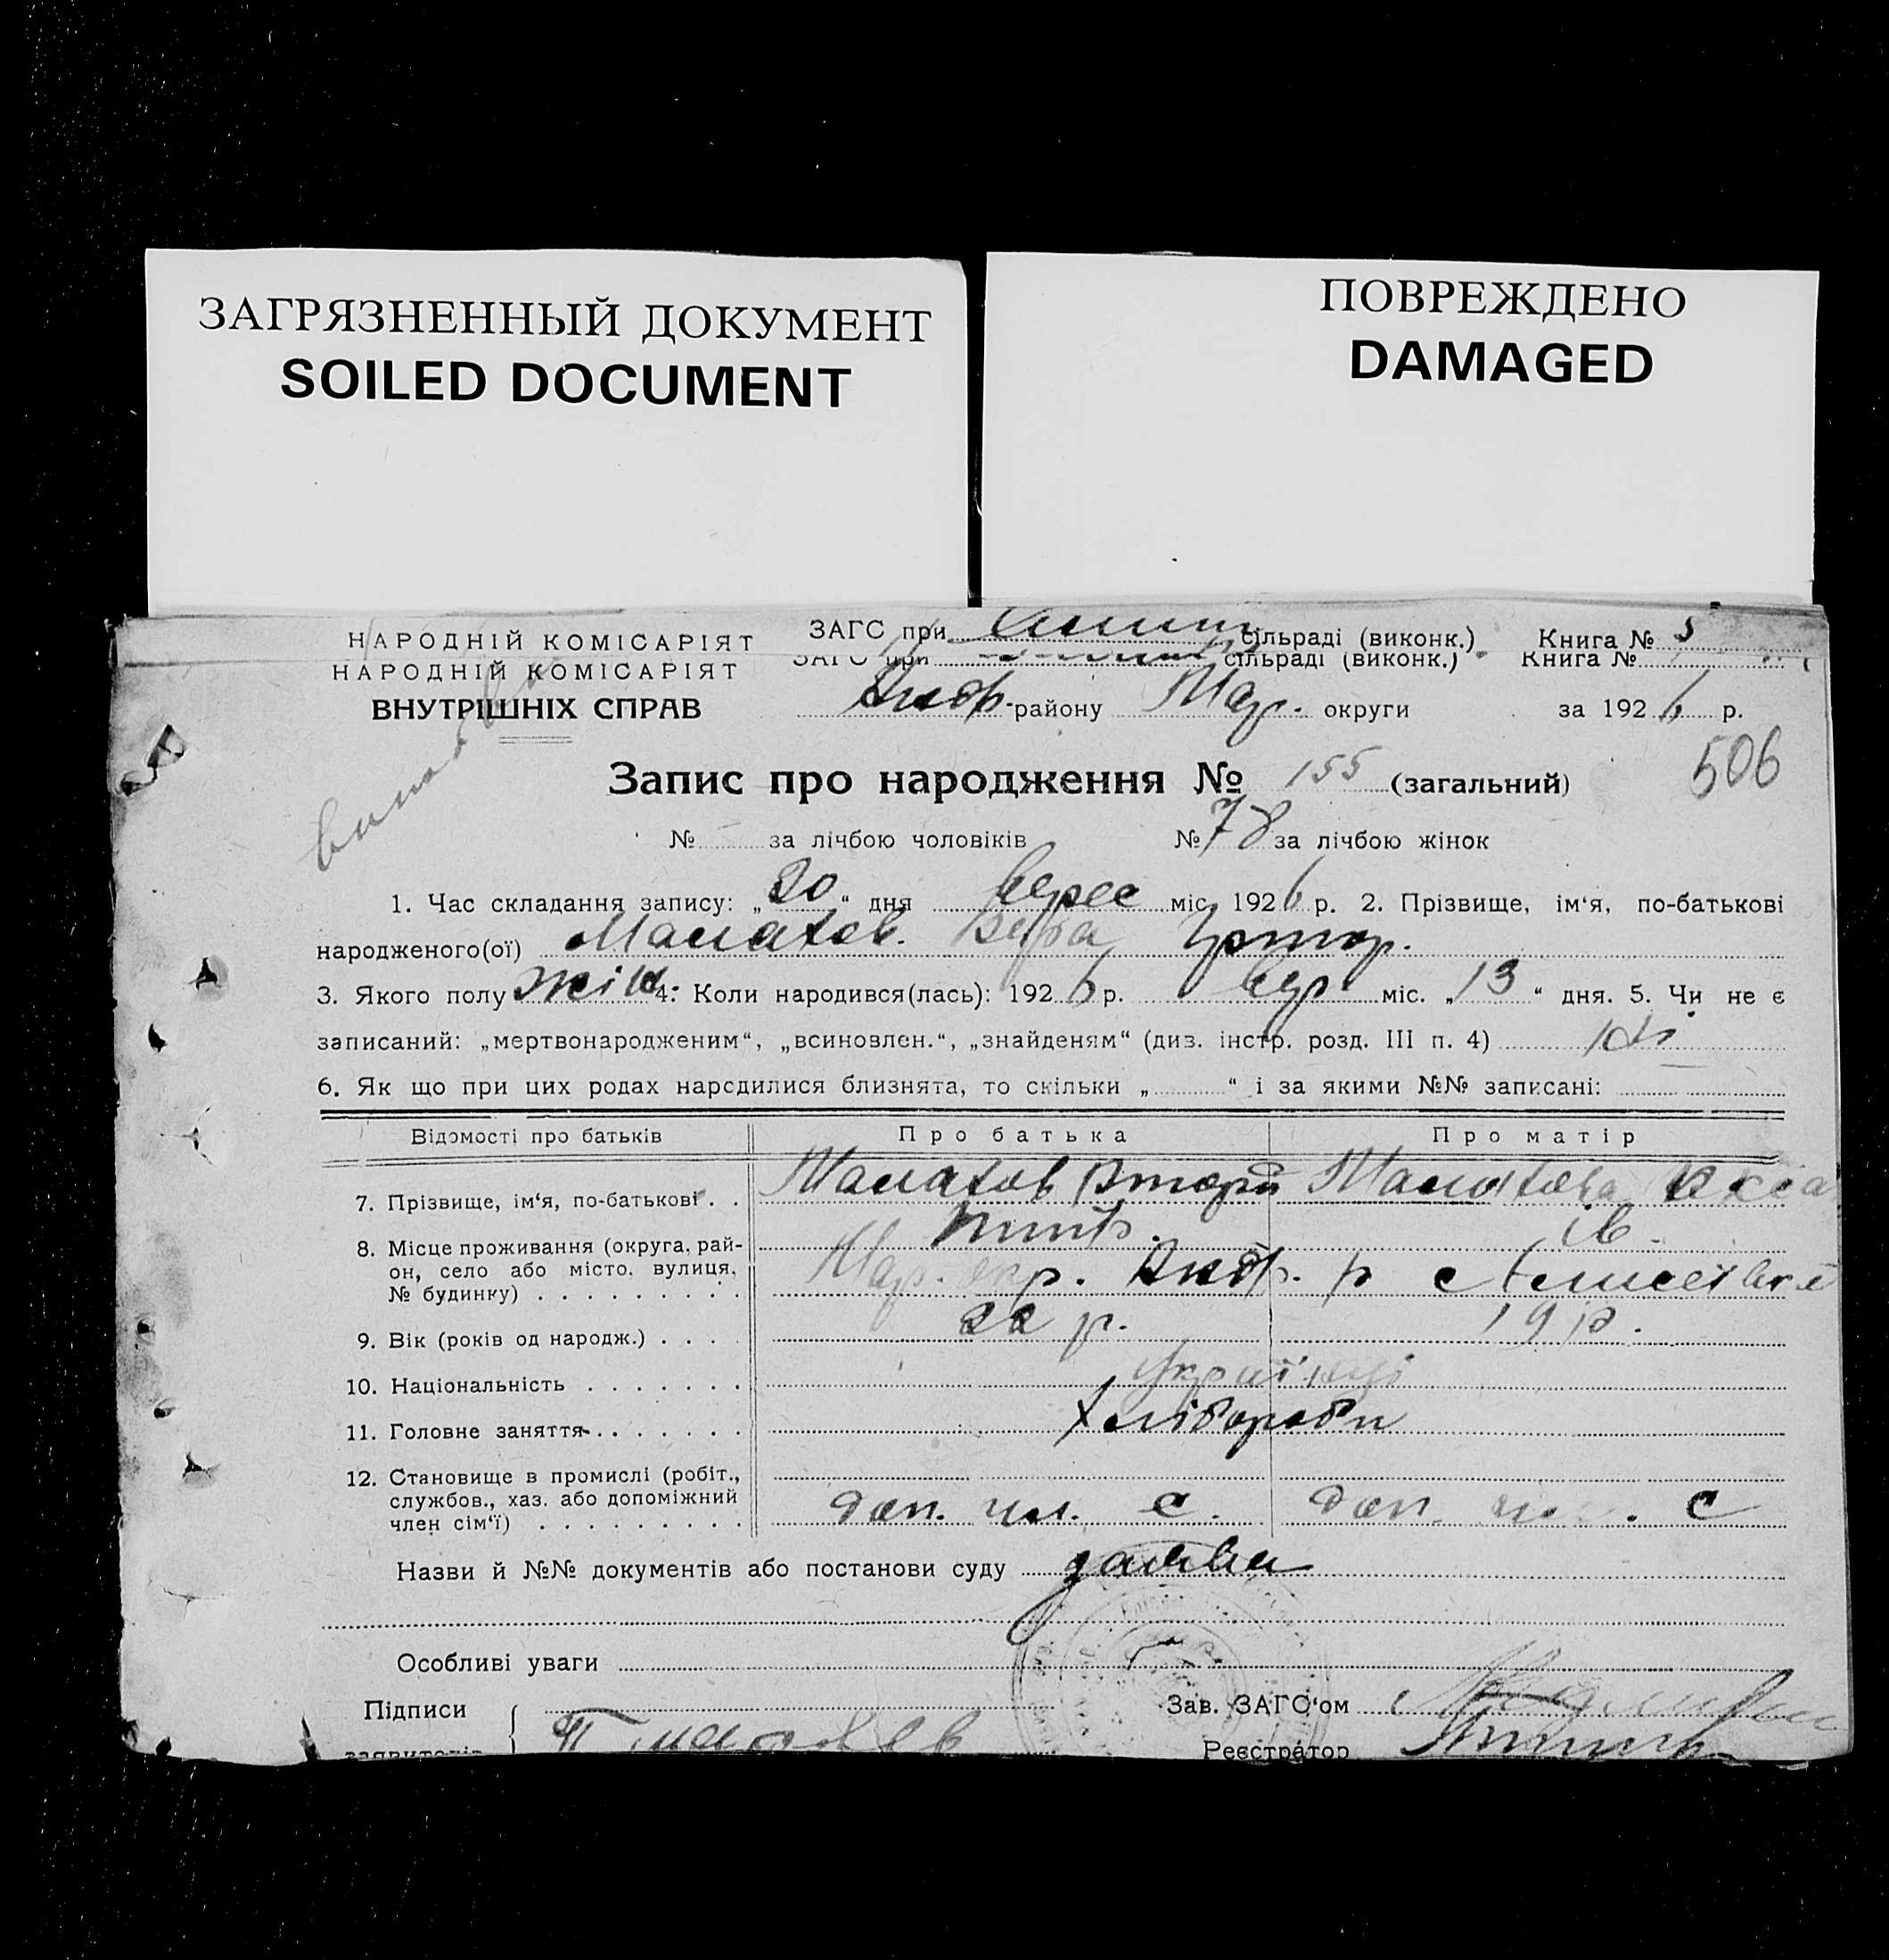 ЗАГРЯЗНЕННЫЙ ДОКУМЕНТ
SOILED DOCUMENT
ПОВРЕЖДЕНО
DAMAGED
НАРОДНІЙ КОМІСАРІЯТ ЗАГС при сільраді (виконк.) Книга № 5
НАРОДНІЙ КОМІСАРІЯТ ЗАГС при сільраді (виконк.) Книга №
ВНУТРІШНІХ СПРАВ району Мар. округи за 1926 р.
Запис про народження № 155 (загальний) 506
№ за лічбою чоловіків № 78 за лічбою жінок
1. Час складання запису: „20“ дня верес міс. 1926 р. 2. Прізвище, ім‘я, по-батькові
народженого(ої) Малахов. Вера
3. Якого полу жін. 4. Коли народився(лась): 1926 р. вер міс. „13“ дня. 5. Чи не є
записаний: „мертвонародженим“, „всиновлен.“, „знайденям“ (див. інстр. розд. III п. 4) ні
6. Як що при цих родах народилися близнята, то скільки „ “ і за якими №№ записані:
Відомості про батьків Про батька Про матір
7. Прізвище, ім‘я, по-батькові . . Малахов Малахова
8. Місце проживання (округа, рай-
он, село або місто, вулиця, Мар. окр. р с
№ будинку) . . . . . . . . .
9. Вік (років од народж.) . . . . 22 р. 19 р.
10. Національність . . . . . . . Українці
11. Головне заняття . . . . . . . Хлібороби
12. Становище в промислі (робіт.,
службов., хаз. або допоміжний
член сім‘ї) . . . . . . . . . доп. чл. с. доп. чл. с
Назви й №№ документів або постанови суду заяви
Особливі уваги
Підписи Зав. ЗАГС‘ом
заявителів Реєстратор